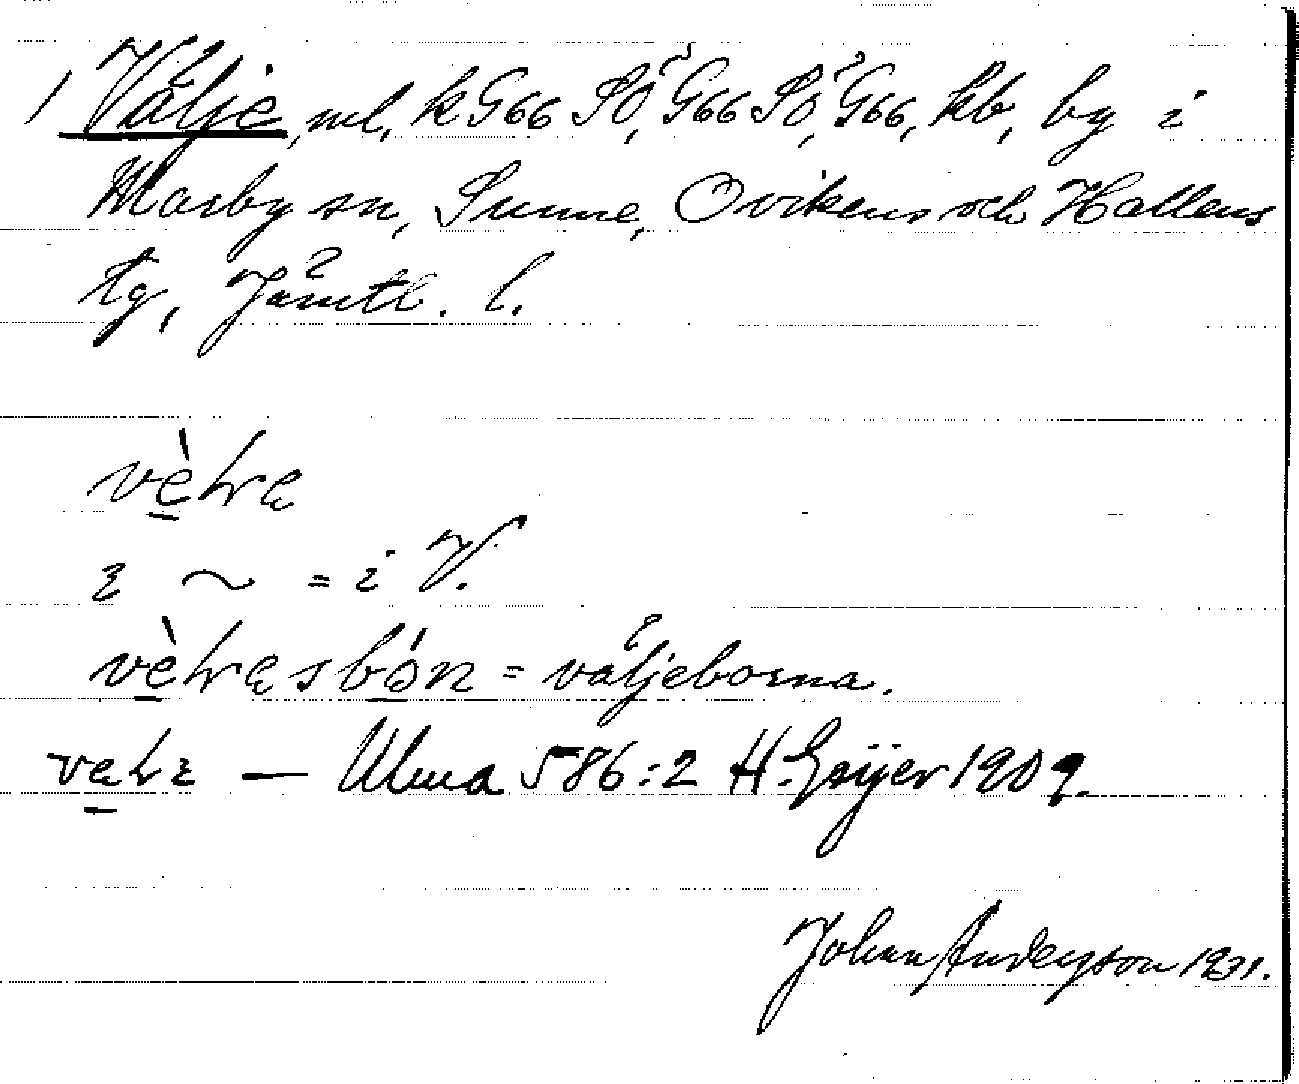 1 Välje, ml, k G66 SO, G66 SÖ, G66, kb, by i
Marby sn, Sunne, Ovikens och Hallens
tg, Jämtl. l.
= i V.
= väljeborna.
— Ulma 586:2 H. Geijer 1909.
Johan Anderson 1931.